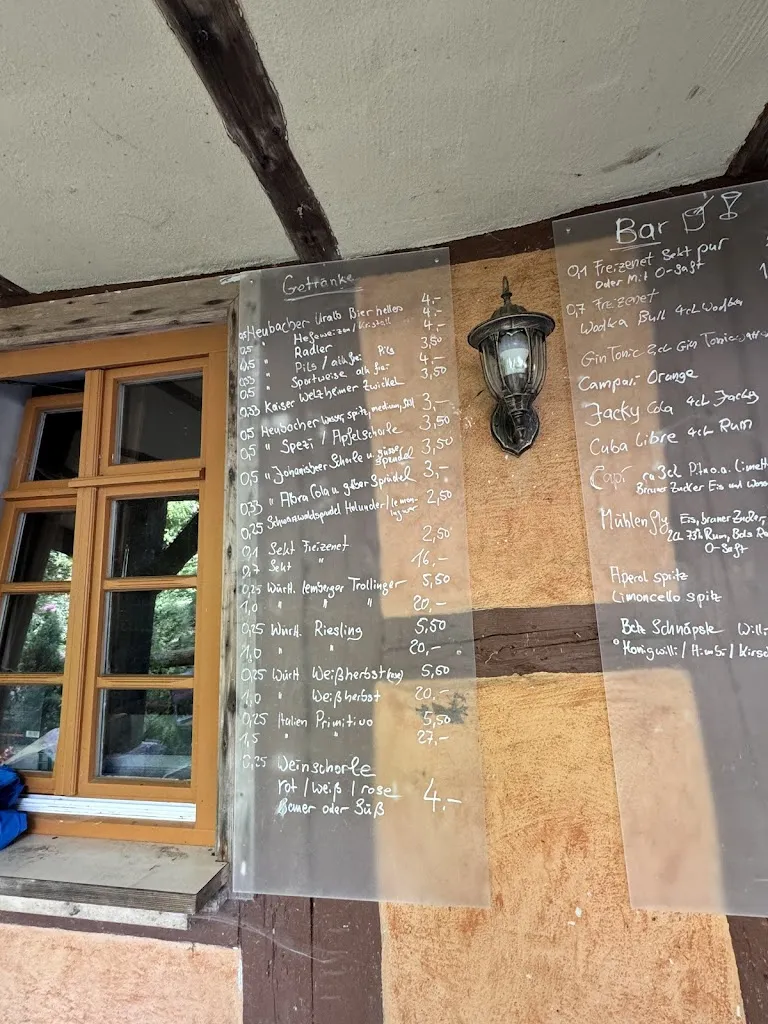 Getränke
0,5 Heubacher Uralb Bier helles 4.-
0,5 " Hefeweizen/Kristall 4.-
0,5 " Radler 4.-
" Pils / alkfrei Pils 3,50
0,5 " Sportweisse alk frei 4.-
0,33 Kaiser Welzheimer Zwickel 3,50
0,5 Heubacher Wasser, spitz, medium, still 3,-
0,5 " Spezi / Apfelschorle 3,50
0,5 " Johannisbeer Schorle u. süsser Sprudel 3,50
0,33 " Afra Cola u. süßer Sprudel 3,-
0,25 Schwarzwaldsprudel Holunder/Lemon- 2,50
ingwer
0,1 Sekt Freizenet 2,50
0,7 Sekt " 16,-
0,25 Württ. Lemberger Trollinger 5,50
1,0 " " " 20,-
0,25 Württ. Riesling 5,50
1,0 " " 20,-
0,25 Württ Weißherbst (rose) 5,50
1,0 " Weißherbst 20,-
0,25 Italien Primitivo 5,50
1,5 " " 27,-
0,25 Weinschorle
rot / weiß / rose 4.-
Sauer oder Süß
Bar
0,1 Freizenet Sekt pur
oder Mit O-Saft
0,7 Freizenet
Wodka Bull 4cl Wodka
Gin Tonic 2cl Gin Tonic
Campari Orange
Jacky Cola 4cl Jacky
Cuba Libre 4cl Rum
Capi ca 3cl Limett
Brauner Zucker Eis und
Mühlenfly Eis, brauner Zucker,
2cl 73% Rum,
O-Saft
Aperol spitz
Limoncello spitz
Betz Schnäpsle Willi
Honigwilli / Himb. / Kirsc